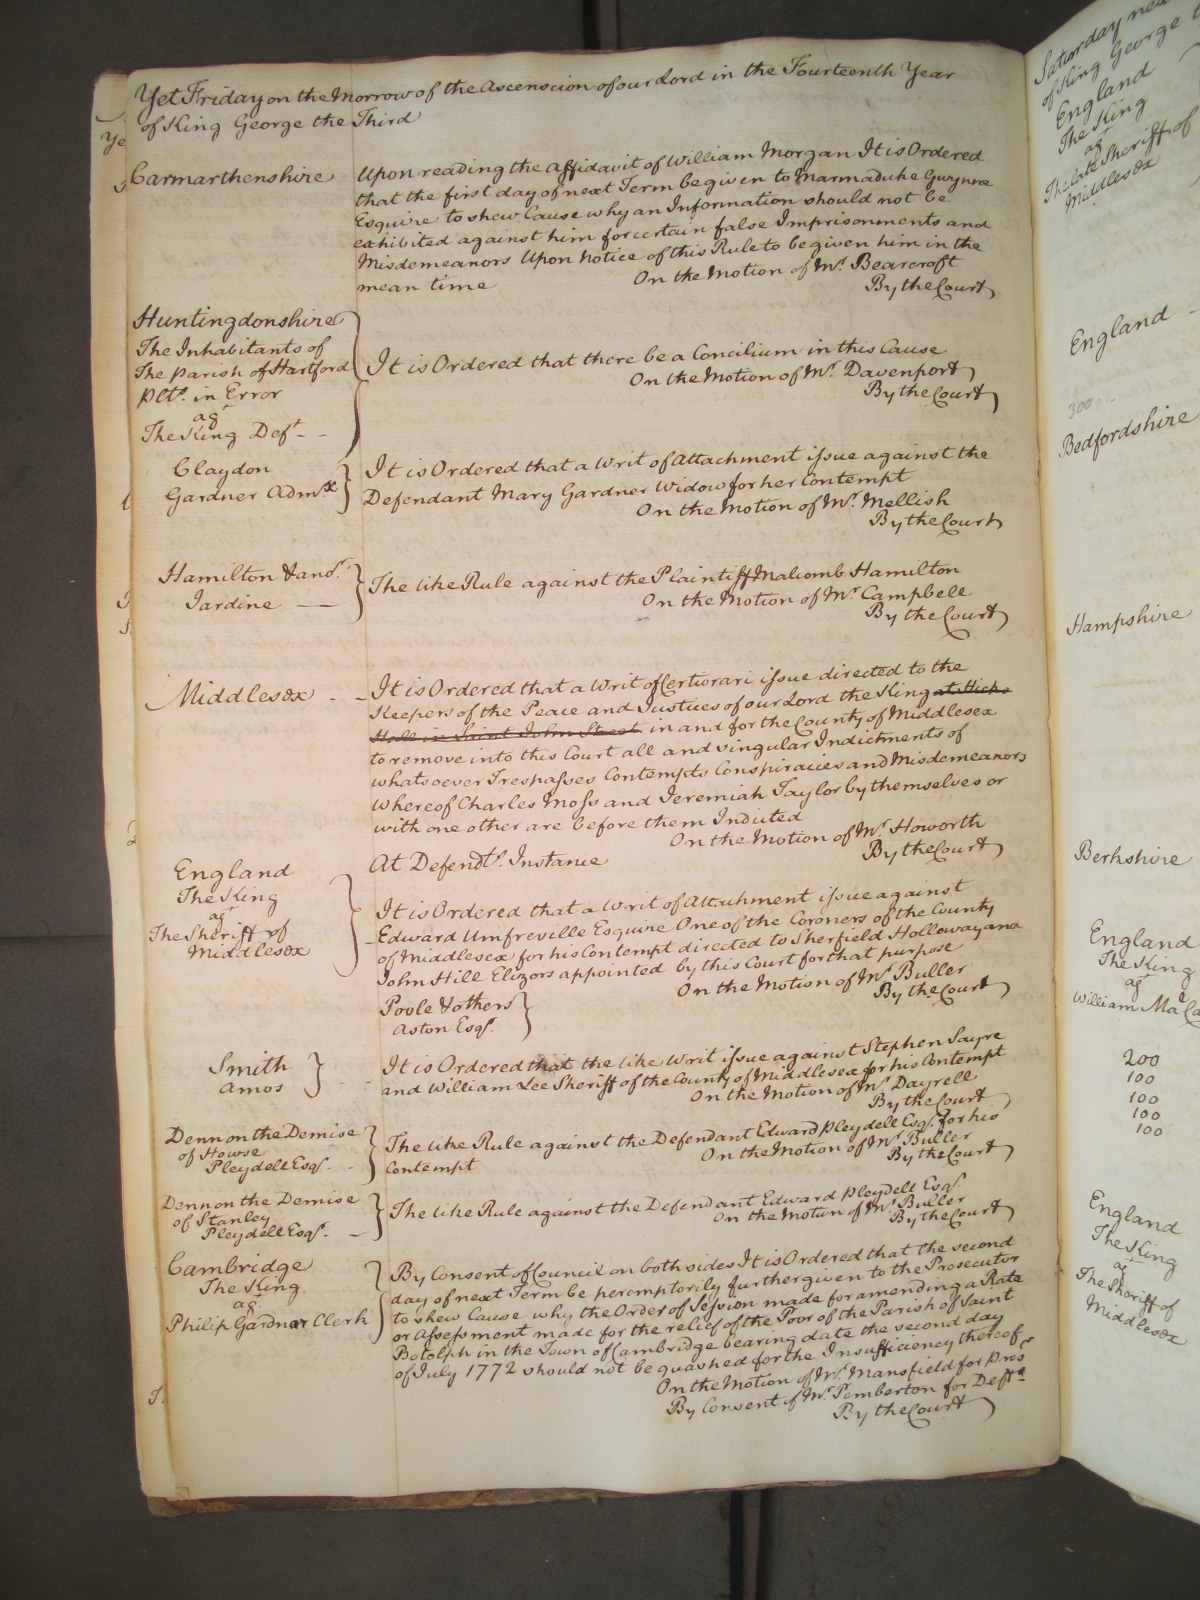 Yet Friday on the Morrow of the Ascenscion of our Lord in the Fourteenth Year
of King George the Third
Carmarthenshire
Upon reading the Affidavit of William Morgan It is Ordered
that the first day of next Term be given to Marmaduke Gwynne
Esquire to shew Cause why an Information should not be
exhibited against him for certain false Imprisonments and
Misdemeanors Upon notice of this Rule to be given him in the
mean time
On the Motion of Mr. Bearcroft
By the Court
Huntingdonshire
The Inhabitants of
The Parish of Hartford
Plts. in Error
agt
The King Deft.
It is Ordered that there be a Concilium in this Cause
On the Motion of Mr. Davenport
By the Court
Claydon
Gardner Admx
It is Ordered that a Writ of Attachment issue against the
Defendant Mary Gardner Widow for her Contempt
On the Motion of Mr. Mellish
By the Court
Hamilton & anor.
Jardine
The like Rule against the Plaintiff Malcomb Hamilton
On the Motion of Mr. Campbell
By the Court
Middlesex
It is Ordered that a Writ of Certiorari issue directed to the
Keepers of the Peace and Justices of our Lord the King at Hicks
Hall in Saint John Street in and for the County of Middlesex
to remove into this Court all and singular Indictments of
whatsoever Trespasses Contempts Conspiracies and Misdemeanors
whereof Charles Moss and Jeremiah Taylor by themselves or
with one other are before them Indicted
On the Motion of Mr. Howorth
At Defendts. Instance
By the Court
England
The King
agt
The Sheriff of
Middlesex
It is Ordered that a Writ of Attachment issue against
Edward Umfreville Esquire One of the Coroners of the County
of Middlesex for his Contempt directed to Sherfield Holloway and
John Hill Elizors appointed by this Court for that purpose
On the Motion of Mr. Buller
By the Court
Poole & others
Aston Esqr.
Smith
Amos
It is Ordered that the like Writ issue against Stephen Sayre
and William Lee Sheriff of the County of Middlesex for his Contempt
On the Motion of Mr. Dayrell
By the Court
Denn on the Demise
of Howse
Pleydell Esqr.
The like Rule against the Defendant Edward Pleydell Esqr. for his
Contempt
On the Motion of Mr. Buller
By the Court
Denn on the Demise
of Stanley
Pleydell Esqr.
The like Rule against the Defendant Edward Pleydell Esqr
On the Motion of Mr. Buller
By the Court
Cambridge
The King
agt.
Philip Gardner Clerk
By Consent of Council on both sides It is Ordered that the second
day of next Term be peremptorily further given to the Prosecutor
to shew Cause why the Order of Session made for amending a Rate
or Assessment made for the relief of the Poor of the Parish of Saint
Botolph in the Town of Cambridge bearing date the second day
of July 1772 should not be quashed for the Insufficiency thereof
On the Motion of Mr. Mansfield for Pros
By Consent of Mr. Pemberton for Deft
By the Court
Saturday
of King George
England
The King
agt
The late Sheriff of
Middlesex
England
300
Bedfordshire
Hampshire
Berkshire
England
The King
agt
William
200
100
100
100
100
England
The King
agt
The Sheriff of
Middlesex